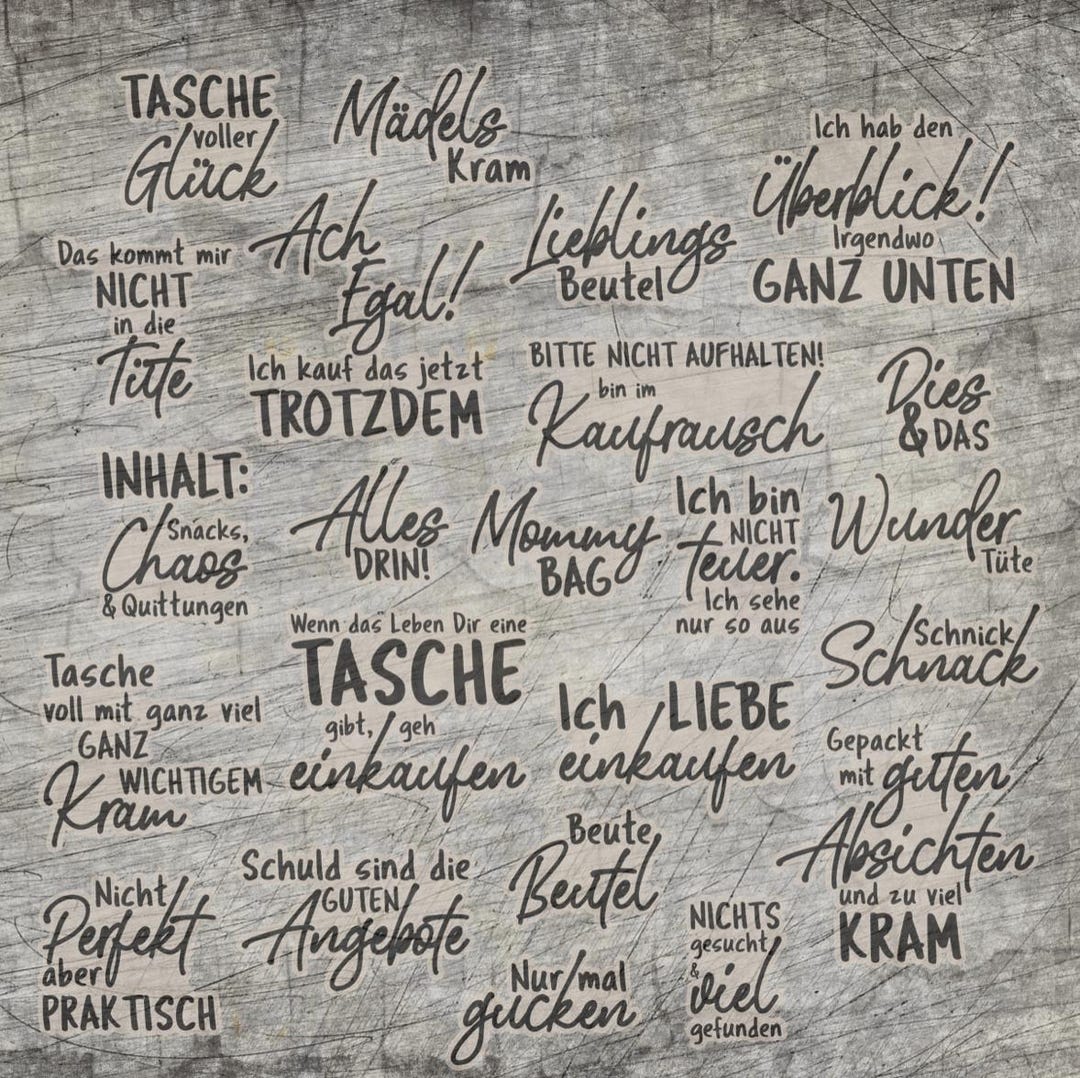 TASCHE
voller
Glück
Mädels
Kram
Ich hab den
Überblick!
Irgendwo
GANZ UNTEN
Das kommt mir
NICHT
in die
Tüte
Ach
Egal!
Lieblings
Beutel
Ich kauf das jetzt
TROTZDEM
BITTE NICHT AUFHALTEN!
bin im
Kaufrausch
Dies
& DAS
INHALT:
Snacks,
Chaos
& Quittungen
Alles
DRIN!
Mommy
BAG
Ich bin
NICHT
teuer.
Ich sehe
nur so aus
Wunder
Tüte
Wenn das Leben Dir eine
TASCHE
gibt, geh
einkaufen
Schnick
Schnack
Tasche
voll mit ganz viel
GANZ
WICHTIGEM
Kram
Ich LIEBE
einkaufen
Gepackt
mit guten
Absichten
und zu viel
KRAM
Nicht
Perfekt
aber
PRAKTISCH
Schuld sind die
GUTEN
Angebote
Beute
Beutel
Nur mal
gucken
NICHTS
gesucht
&
viel
gefunden